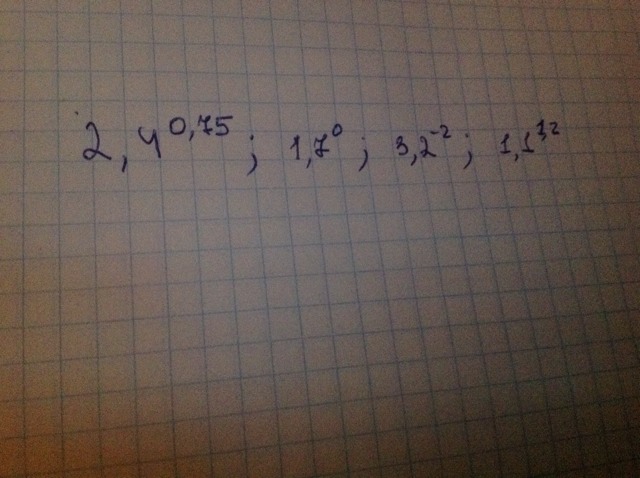 2,4^0,75; 1,7^0; 3,2^-2; 1,1^3,2